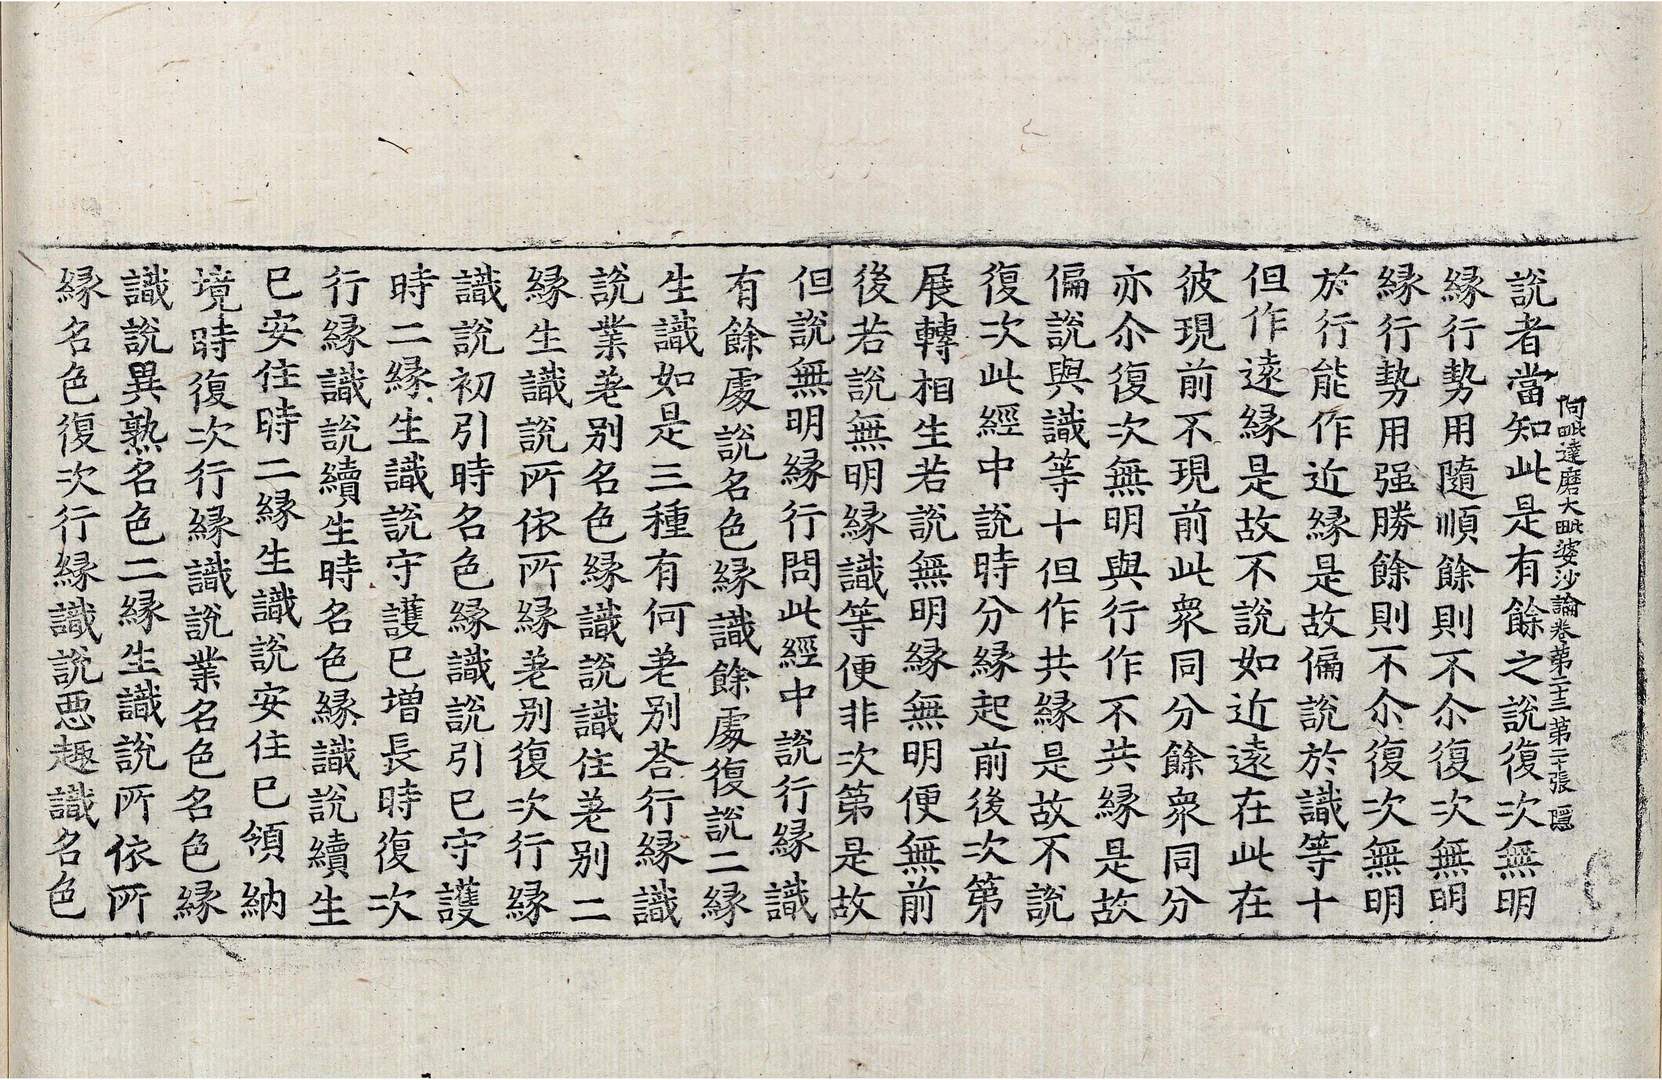 阿毗達磨大毗婆沙論卷第二十三 第二十張 隱
說者當知此是有餘之說復次無明
緣行勢用隨順餘則不尒復次無明
緣行勢用强勝餘則不尒復次無明
於行能作近緣是故偏說於識等十
但作遠緣是故不說如近遠在此在
彼現前不現前此衆同分餘衆同分
亦尒復次無明與行作不共緣是故
偏說與識等十但作共緣是故不說
復次此經中說時分緣起前後次第
展轉相生若說無明緣無明便無前
後若說無明緣識等便非次第是故
但說無明緣行問此經中說行緣識
有餘處說名色緣識餘處復說二緣
生識如是三種有何差別荅行緣識
說業差別名色緣識說識住差別二
緣生識說所依所緣差別復次行緣
識說初引時名色緣識說引已守護
時二緣生識說守護已增長時復次
行緣識說續生時名色緣識說續生
已安住時二緣生識說安住已領納
境時復次行緣識說業名色名色緣
識說異熟名色二緣生識說所依所
緣名色復次行緣識說惡趣識名色